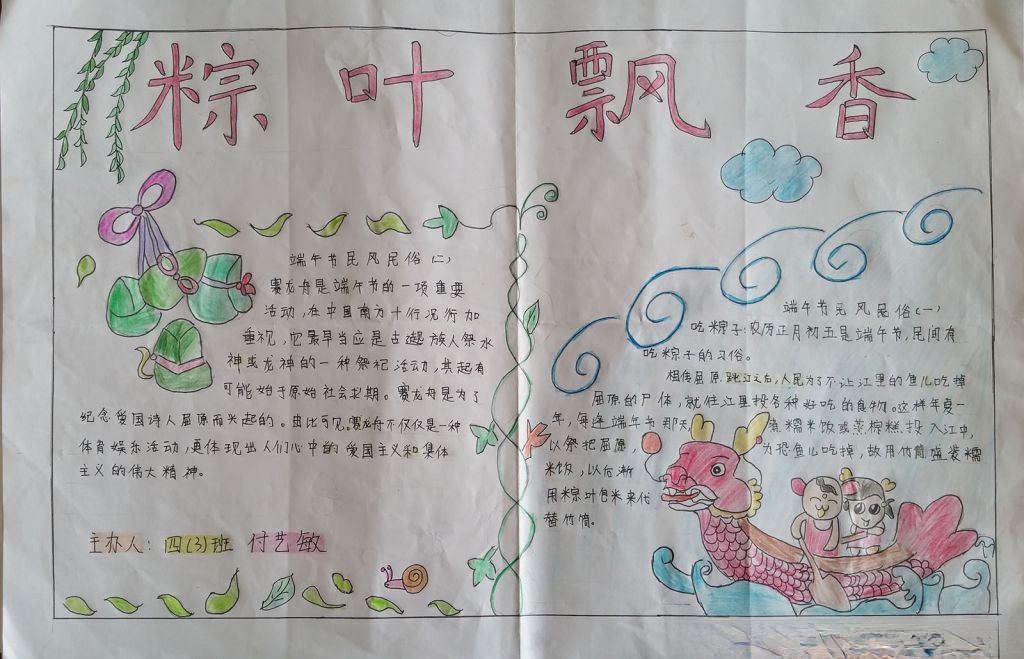 粽叶飘香
端午节民风民俗(二)
赛龙舟是端午节的一项重要
活动,在中国南方十行况行加
重视,它最早当应是古越族人祭水
神或龙神的一种祭祀活动,其起有
可能始于原始社会末期。赛龙舟是为了
纪念爱国诗人屈原而兴起的。由此可见,赛龙舟不仅仅是一种
体育娱乐活动,更体现出人们心中的爱国主义和集体
主义的伟大精神。
主办人: 四(3)班 付艺敏
端午节民风民俗(一)
吃粽子:农历正月初五是端午节,民间有
吃粽子的习俗。
相传屈原跳江之后,人民为了不让江里的鱼儿吃掉
屈原的尸体,就往江里投各种好吃的食物。这样年复一
年,每逢端午节那天,煮糯米饭或蒸粽糕投入江中,
以祭祀屈原,为恐鱼儿吃掉,故用竹筒盛装糯
米饭,以后渐
用粽叶包米来代
替竹筒。